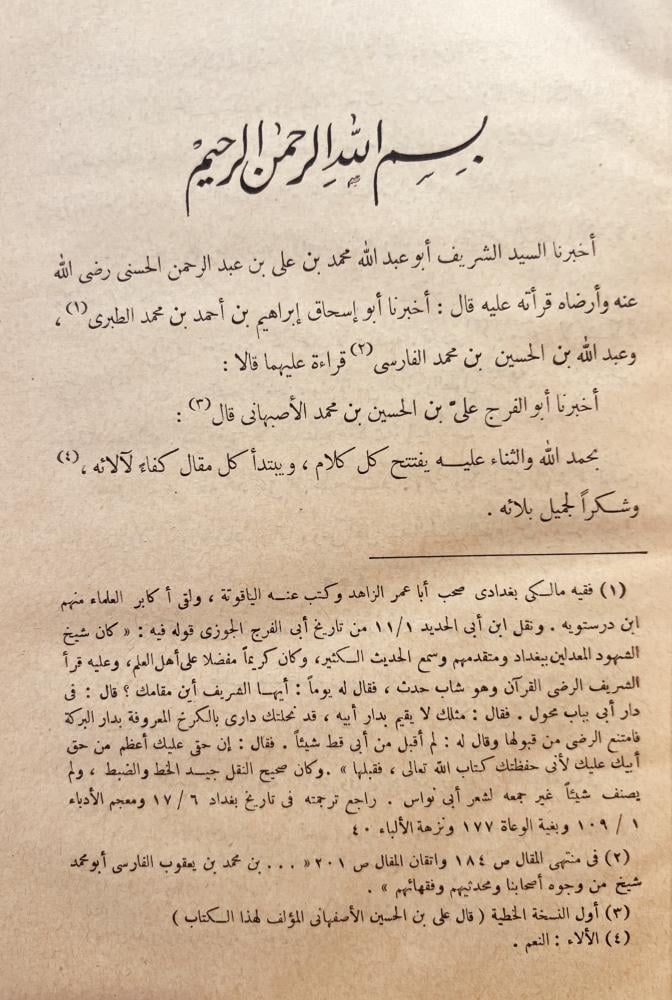 بسم الله الرحمن الرحيم
أخبرنا السيد الشريف أبو عبد الله محمد بن على بن عبد الرحمن الحسنى رضى الله
عنه وأرضاه قرأته عليه قال : أخبرنا أبو إسحاق إبراهيم بن أحمد بن محمد الطبرى(١) ،
وعبد الله بن الحسين بن محمد الفارسى(٢) قراءة عليهما قالا :
أخبرنا أبو الفرج علىّ بن الحسين بن محمد الأصبهانى قال(٣) :
بحمد الله والثناء عليه يفتتح كل كلام ، ويبتدأ كل مقال كفاءً لآلائه ،(٤)
وشكراً لجميل بلائه .
(١) فقيه مالكى بغدادى صحب أبا عمر الزاهد وكتب عنه الياقوتة ، ولقى أكابر العلماء منهم
ابن درستويه . ونقل ابن أبى الحديد ١/١١ من تاريخ أبى الفرج الجوزى قوله فيه : « كان شيخ
الشهود المعدلين ببغداد ومتقدمهم وسمع الحديث الكثير، وكان كريماً مفضلا على أهل العلم، وعليه قرأ
الشريف الرضى القرآن وهو شاب حدث ، فقال له يوماً : أيها الشريف أين مقامك ؟ قال : فى
دار أبى بباب محول . فقال : مثلك لا يقيم بدار أبيه ، قد نحلتك دارى بالكرخ المعروفة بدار البركة
فامتنع الرضى من قبولها وقال له : لم أقبل من أبى قط شيئاً . فقال : إن حقى عليك أعظم من حق
أبيك عليك لأنى حفظتك كتاب الله تعالى ، فقبلها » .وكان صحيح النقل جيد الخط والضبط ، ولم
يصنف شيئاً غير جمعه لشعر أبى نواس . راجع ترجمته فى تاريخ بغداد ٦ / ١٧ ومعجم الأدباء
١ / ١٠٩ وبغية الوعاة ١٧٧ ونزهة الألباء ٤٠
(٢) فى منتهى المقال ص ١٨٤ واتقان المقال ص ٢٠١ « ... بن محمد بن يعقوب الفارسى أبو محمد
شيخ من وجوه أصحابنا ومحدثيهم وفقهائهم » .
(٣) أول النسخة الخطية ( قال على بن الحسين الأصفهانى المؤلف لهذا الكتاب )
(٤) الألاء : النعم .